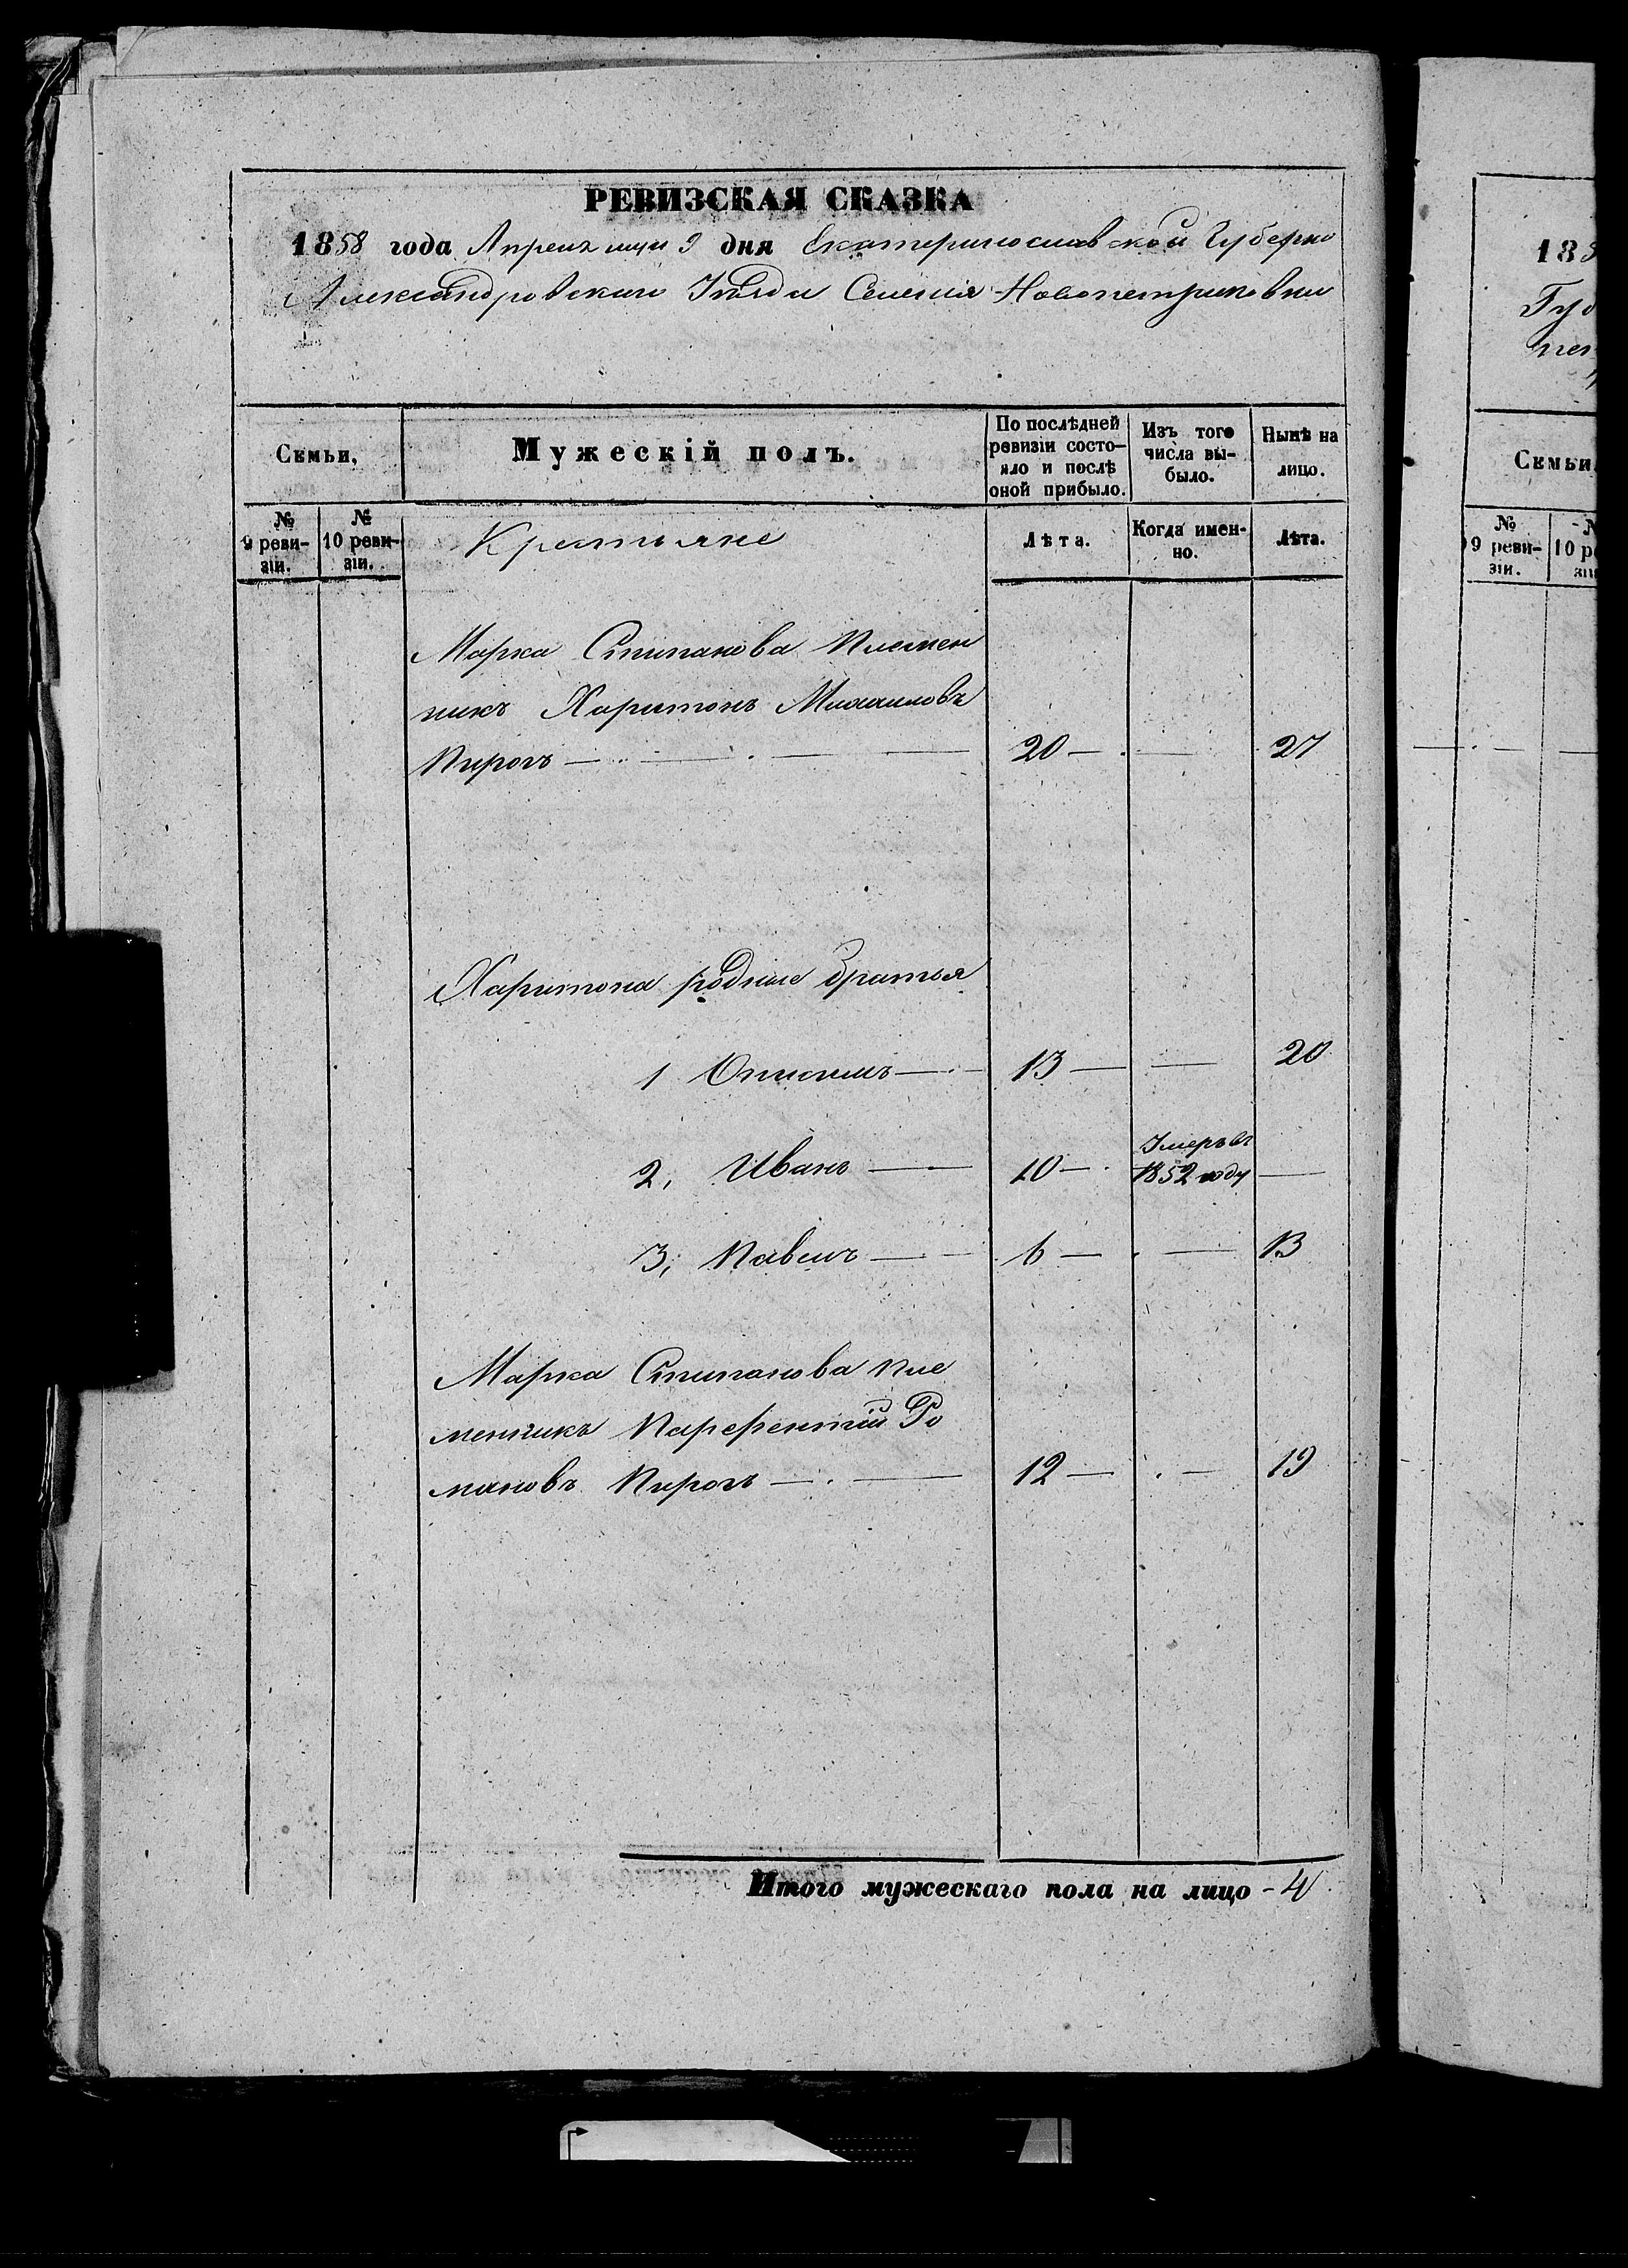 РЕВИЗСКАЯ СКАЗКА
1858 года Апреля мца 9 дня Екатеринославской Губерни
Александровскаго Уезда Селения Новопетриковки
Семьи,
Мужескій полъ.
По послѣдней ревизіи состо-
яло и послѣ оной прибыло.
Изъ того числа вы-
было.
Нынѣ на лицо.
№ 9 реви-
зіи.
№ 10 реви-
зіи.
Крестьяне
Лѣта.
Когда имен-
но.
Лѣта.
Марка Стипанова Племен
никъ Харитонъ Михаиловъ
Пирогъ 20 27
Харитона родные братья
1 Онисимъ 13 20
2, Иванъ 10 Умеръ въ 1852 году
3, Павелъ 6 13
Марка Стипанова пле
менникъ Парфентий Ро
мановъ Пирогъ 12 19
Итого мужескаго пола на лицо - 4
183
Гу
Семьи
№ 9 реви-
зіи.
10 р